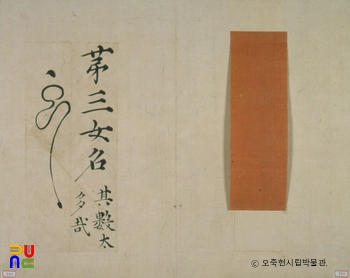 苐三女名
其數太
多哉
© 오죽헌시립박물관.